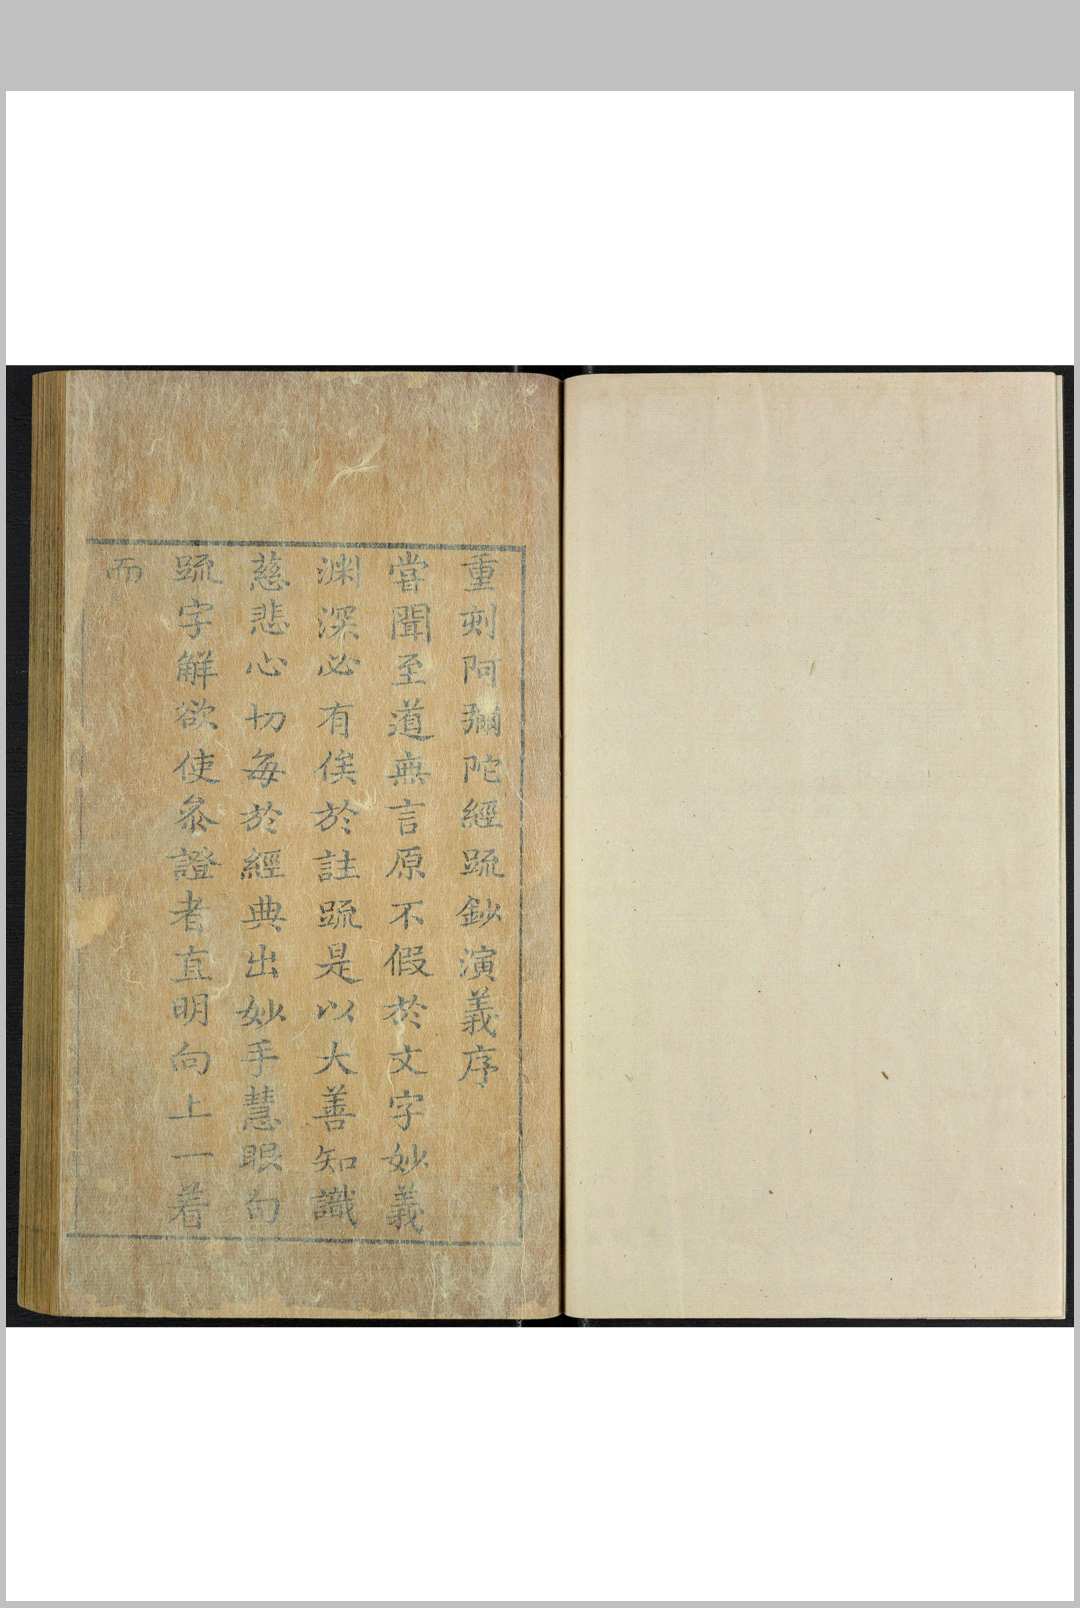 重刻阿彌陀經䟽鈔演義序
甞聞至道無言原不假於文字妙義
渊深必有俟於註䟽是以大善知識
慈悲心切每於經典出妙手慧眼句
䟽字解欲使叅證者直明向上一着
而